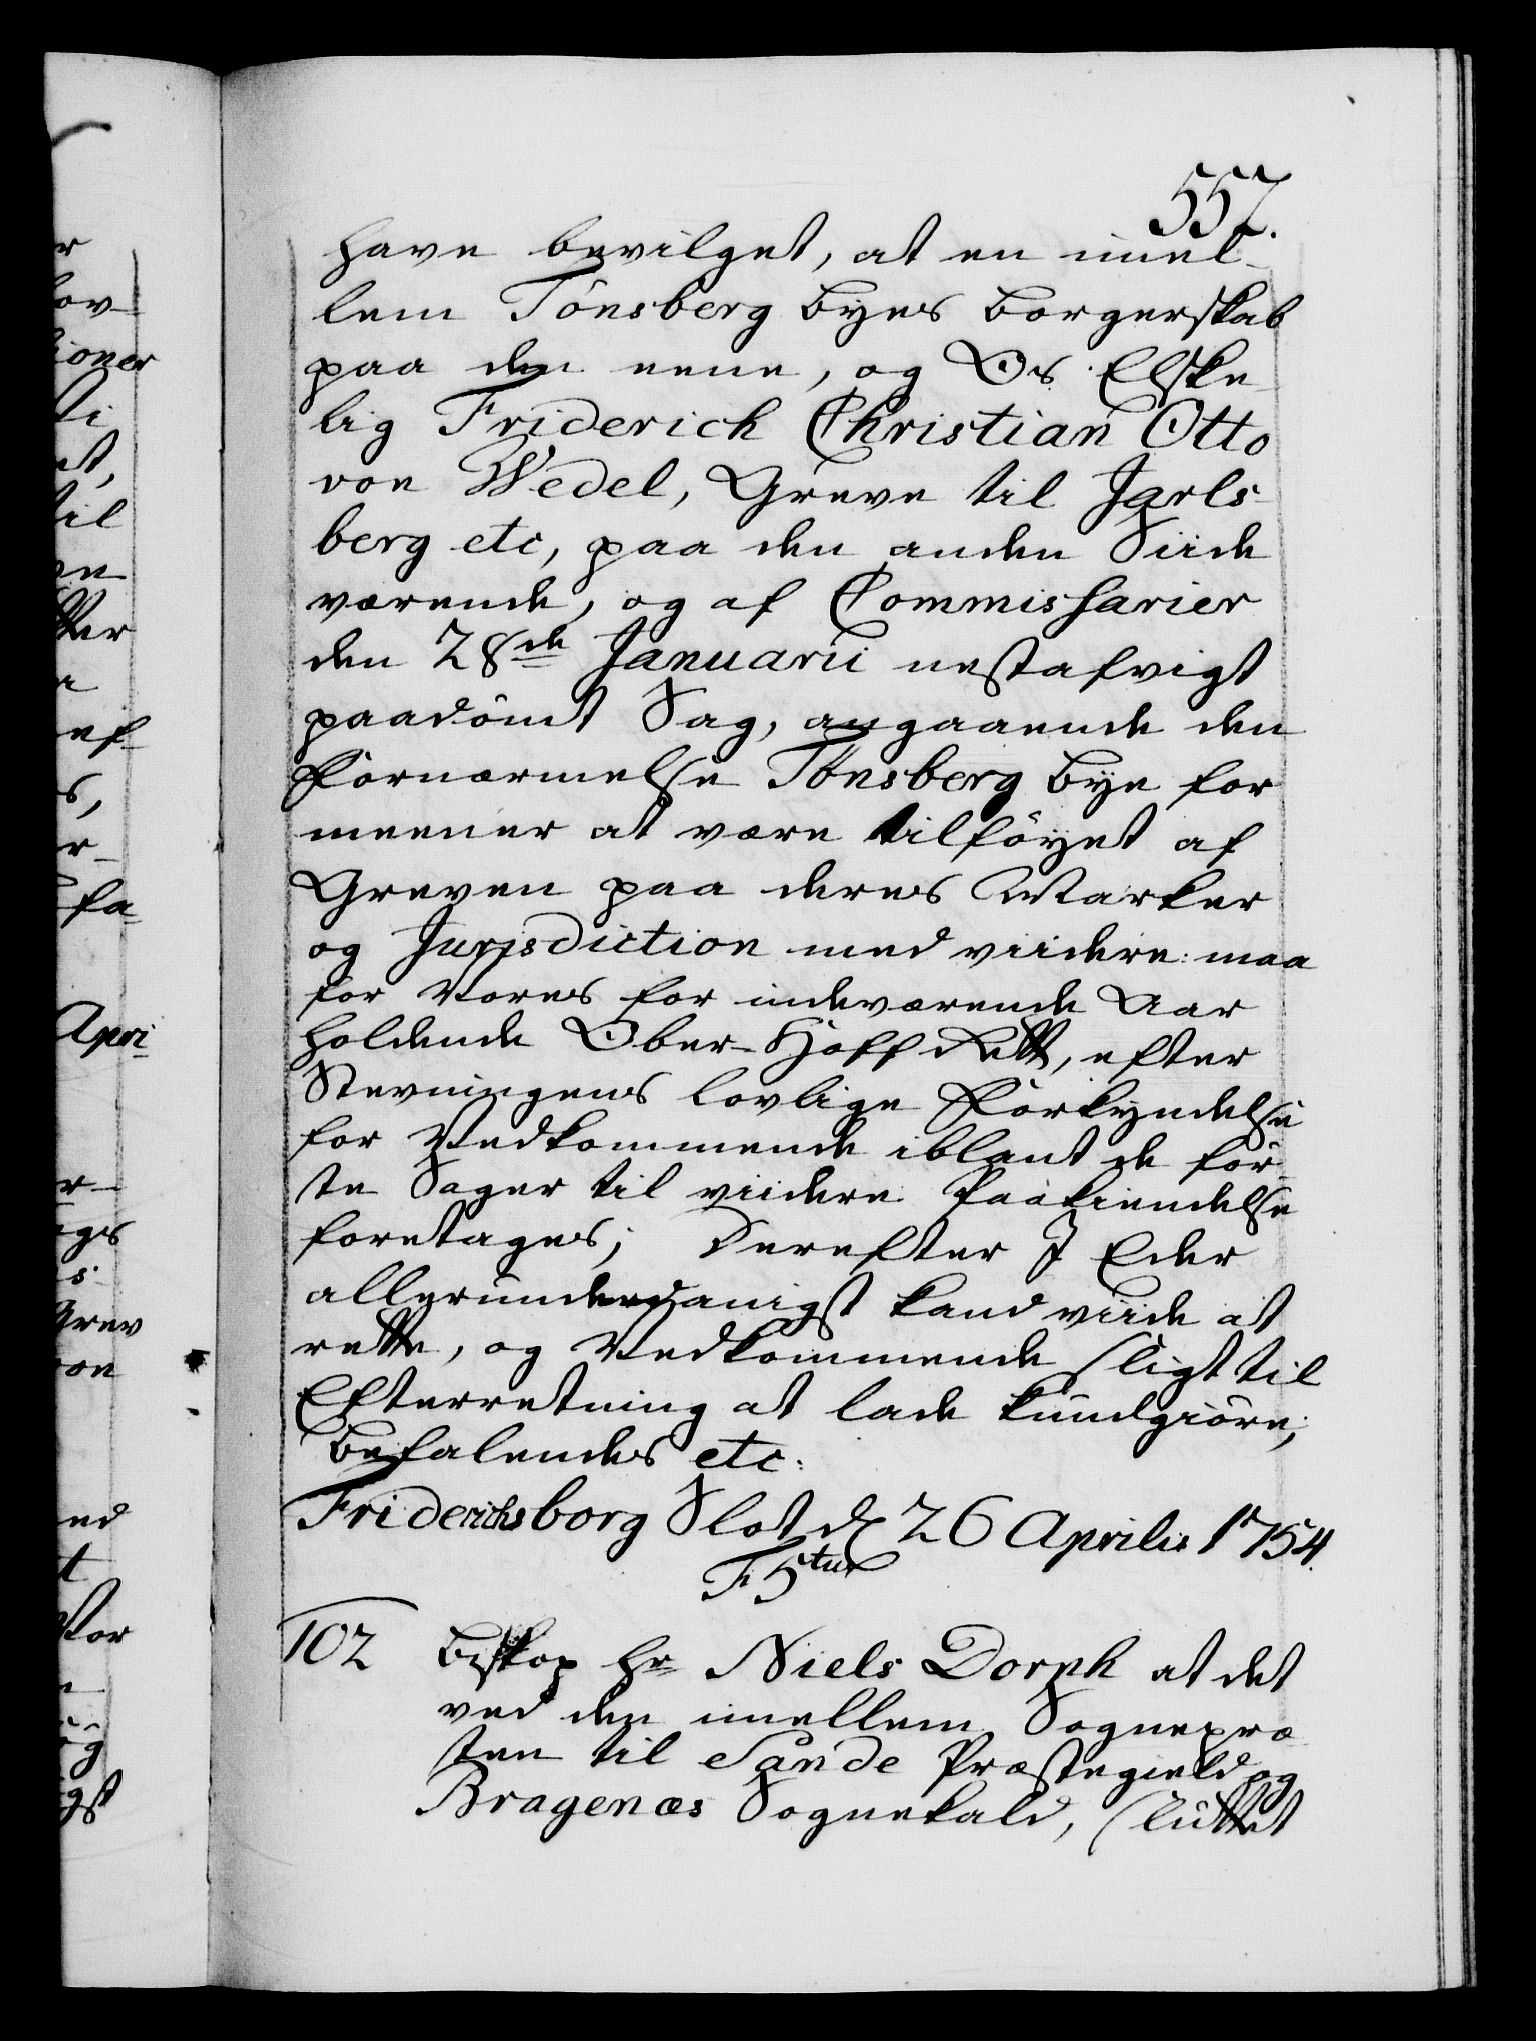 557.
have bevilget, at en imel-
lem Tönsberg Byes Borgerskab
paa den eene, og Os Elske-
lig Friderich Christian Otto
von Wedel, Greve til Jarls-
berg etc, paa den anden Siide
værende, og af Commissarier
den 28de Januarii nestafvigt
paadömt Sag, angaaende den
Fornærmelse Tönsberg Bye for
meener at være tilföyet af
Greven paa deres Marker
og Jurisdiction med viidere: maa
for Vores for indeværende Aar
holdende Ober-Hoff Rett, efter
Stevningens lovlige Forkyndelse
for Vedkommende iblant de för-
ste Sager til viidere Paakiendelse
foretages; Derefter I Eder
allerunderdanigst kand viide at
rette, og Vedkommende sligt til
Efterretning at lade kundgiöre;
Befalendes etc:
Friderichsborg Slot d 26 Aprilis 1754.
F5tus
102 Biskop Hr Niels Dorph at det
ved den imellem Sognepræ-
sten til Sande Præstegield og
Bragenæs Sognekald, sluttet
r
lov-
tioner
ti
et,
til
en
tter
a
ef-
s,
r-
fa-
Apri-
r-
ges
s-
Grev
von
nd
t
ster
og
gst